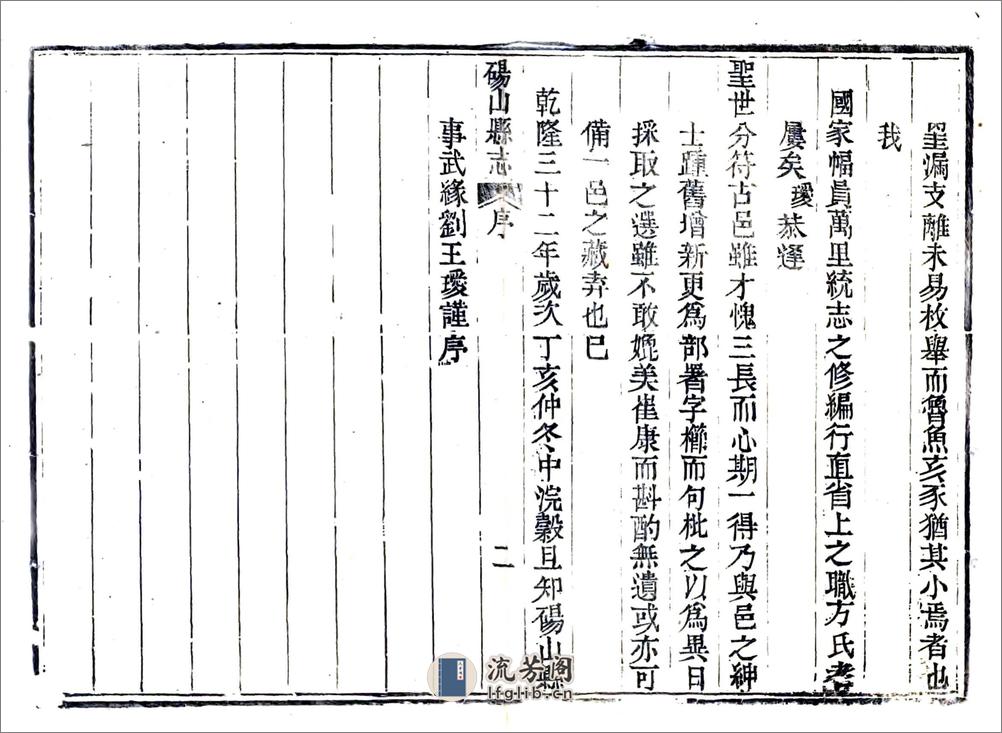 罣漏支離未易枚舉而魯魚亥豕猶其小焉者也
我
國家幅員萬里統志之修編行直省上之職方氏者
屢矣瑷恭逢
聖世分符古邑雖才愧三長而心期一得乃與邑之紳
士踵舊增新更爲部署字櫛而句枇之以爲異日
採取之選雖不敢媲美崔康而斟酌無遺或亦可
備一邑之藏弆也已
乾隆三十二年歲次丁亥仲冬中浣穀旦知碭山縣
碭山縣志 序 二
事武緣劉王瑷謹序
流芳閣
lfglib.cn